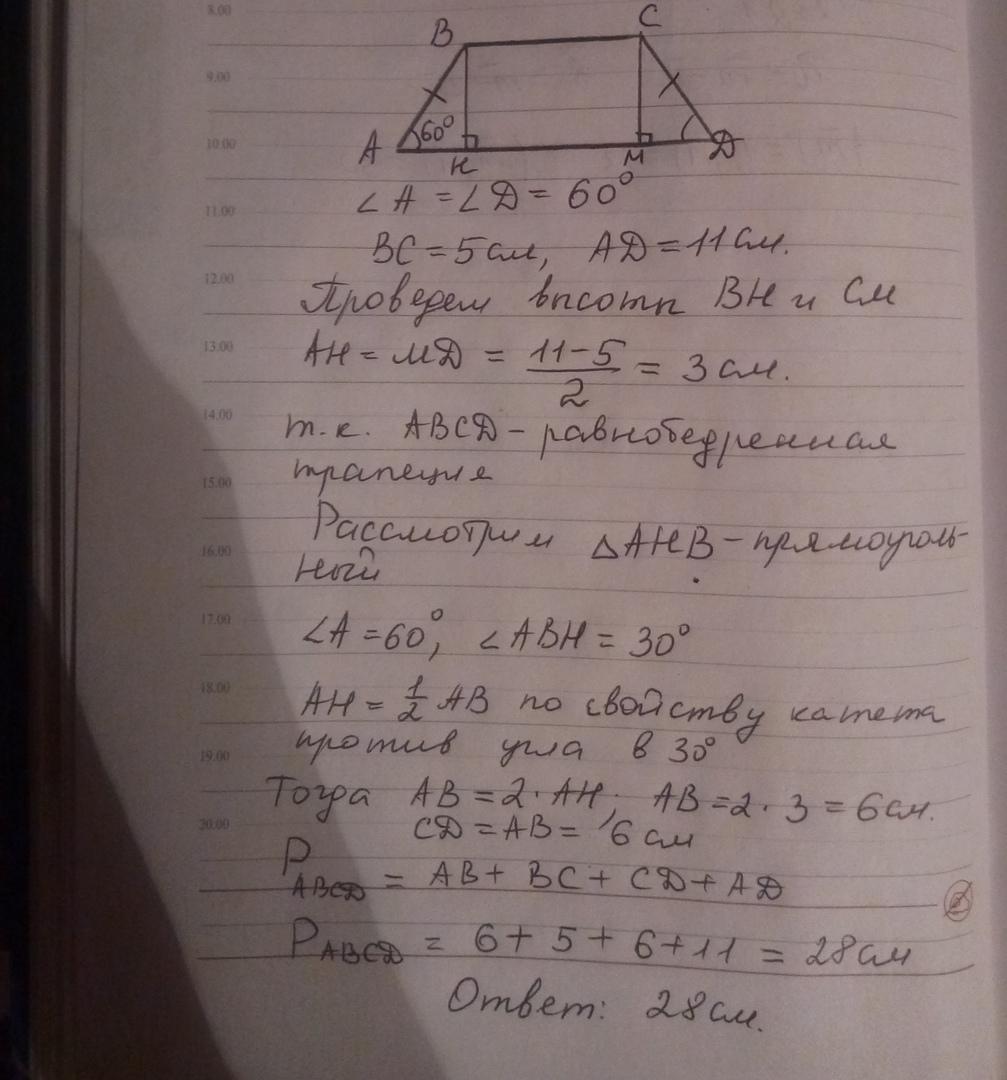 8.00
B C
9.00
60°
10.00
A H M D
∠A = ∠D = 60°
11.00
BC = 5 см, AD = 11 см.
12.00
Проведем высоты BH и CM
13.00
AH = MD = \frac{11-5}{2} = 3 см.
14.00
т.к. ABCD - равнобедренная
трапеция
15.00
Рассмотрим △AHB - прямоуголь-
16.00
ный
17.00
∠A = 60°, ∠ABH = 30°
18.00
AH = \frac{1}{2} AB по свойству катета
против угла в 30°
19.00
Тогда AB = 2·AH, AB = 2·3 = 6 см.
20.00
CD = AB = 6 см
P ABCD = AB + BC + CD + AD
P ABCD = 6 + 5 + 6 + 11 = 28 см
Ответ: 28 см.